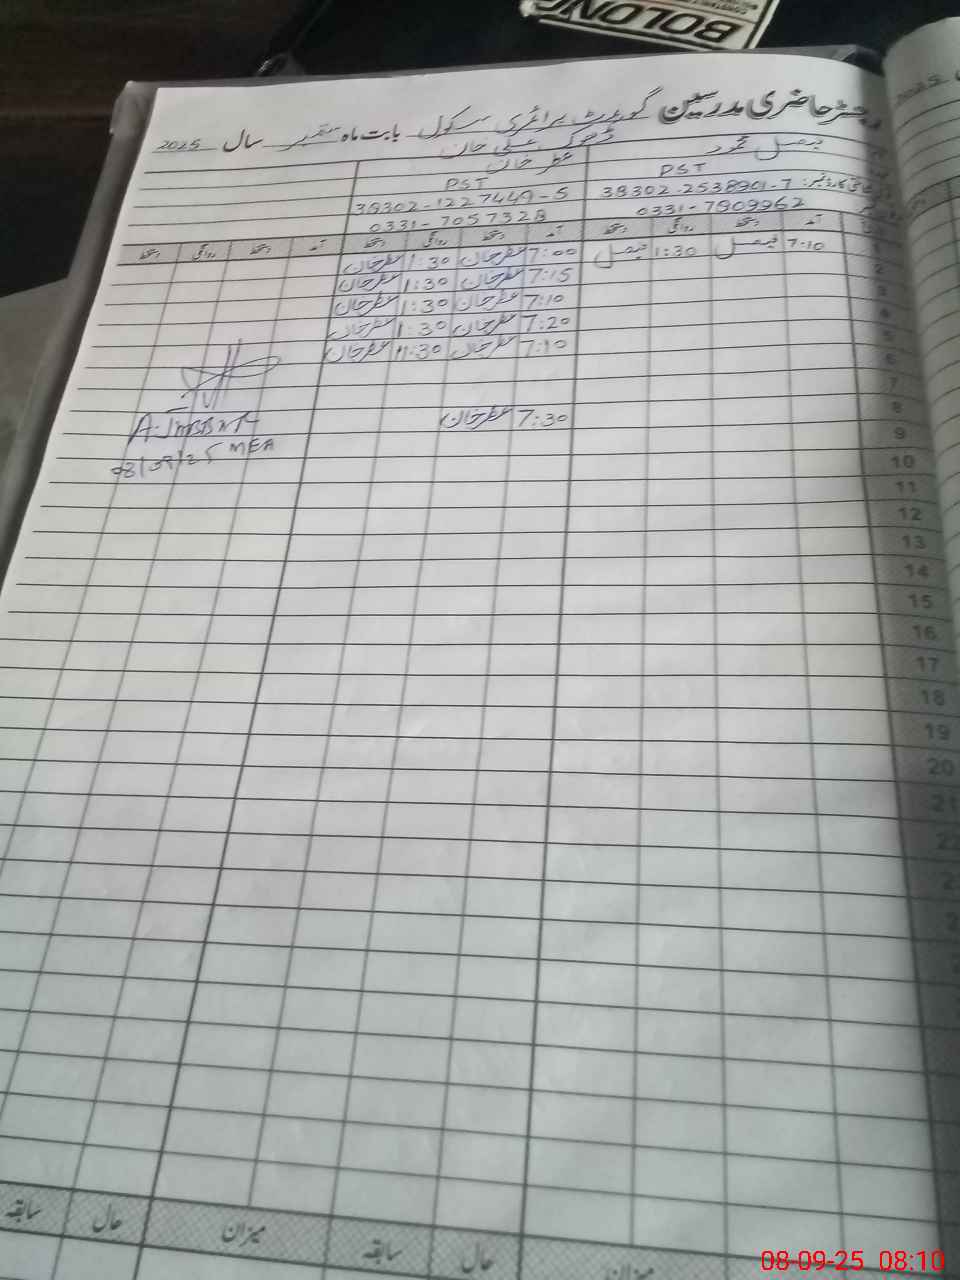 BOLONG
رجسٹر حاضری مدرسین گورنمنٹ پرائمری سکول ڈھوک علی خان بابت ماہ ستمبر سال 2025
فیصل محمود عطر خان
PST PST
38302-2538901-7 38302-1227449-5
0331-7909962 0331-7057328
آمد دستخط روانگی دستخط آمد دستخط روانگی دستخط آمد دستخط روانگی دستخط
1 7:10 فیصل 1:30 فیصل 7:00 عطر خان 1:30 عطر خان
2 7:15 عطر خان 1:30 عطر خان
3 7:10 عطر خان 1:30 عطر خان
4 7:20 عطر خان 1:30 عطر خان
5 7:10 عطر خان 11:30 عطر خان
6
7
8 7:30 عطر خان
08/09/25 MEA
9
10
11
12
13
14
15
16
17
18
19
20
21
میزان حال سابقہ میزان حال سابقہ
08-09-25 08:10